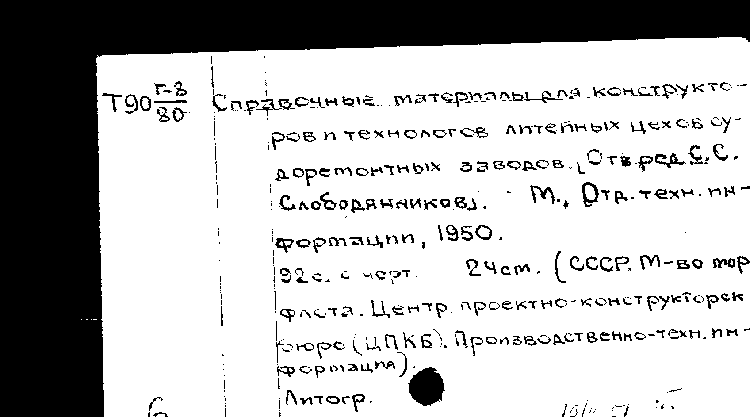 Т90 Г-8/80 Справочные материалы для конструкто-
ров и технологов литейных цехов су-
доремонтных заводов. [Отв. ред. С. С.
Слободянников]. М., Отд. техн. ин-
формации, 1950.
92 с. с черт. 24 см. (СССР. М-во мор.
флота. Центр. проектно-конструкторск.
бюро (ЦПКБ). Производственно-техн. ин-
формация).
Литогр.